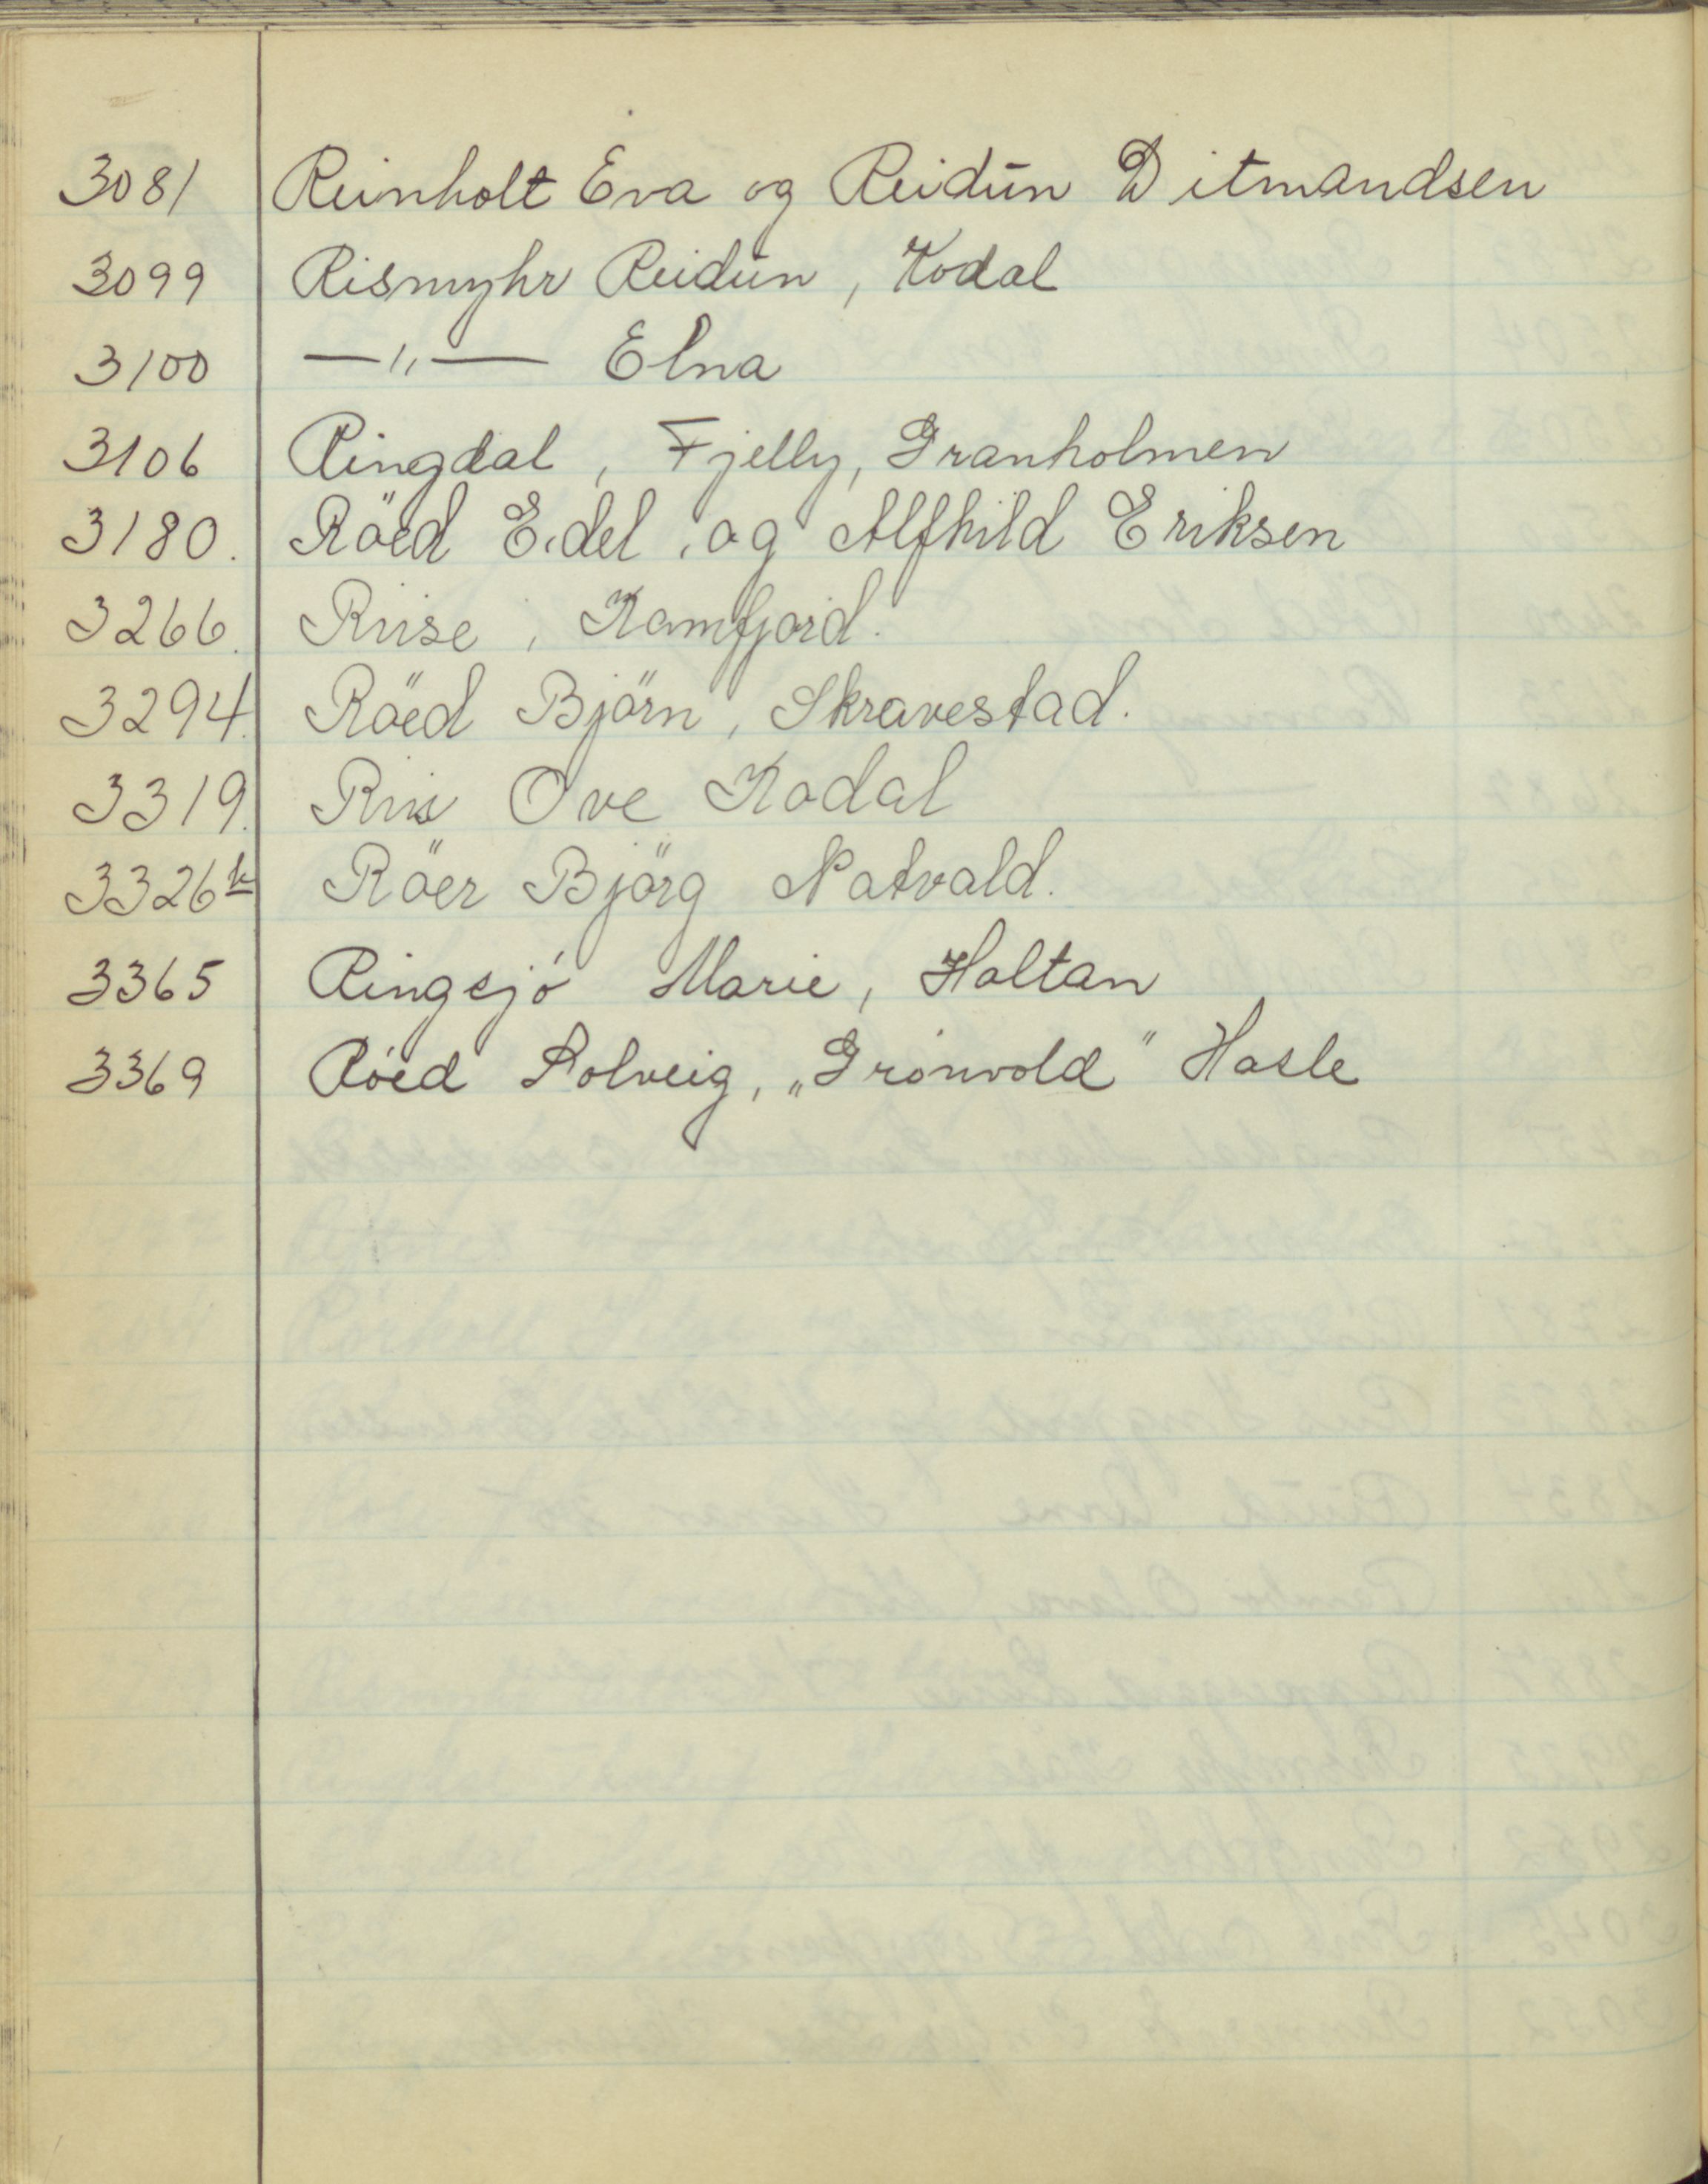 3081 Reinholt Eva og Reidun Ditmandsen
3099 Rismyhr Reidun, Kodal
3100 —"— Elna
3106 Ringdal, Fjelly, Granholmen
3180. Röed Edel, og Alfhild Eriksen
3266. Riise, Kamfjord.
3294. Röed Björn, Skravestad.
3319. Riis Ove Kodal
3326 Röer Björg Natvald.
3365 Ringsjö Marie, Holtan
3369 Röed Solveig, „Grönvold" Hasle